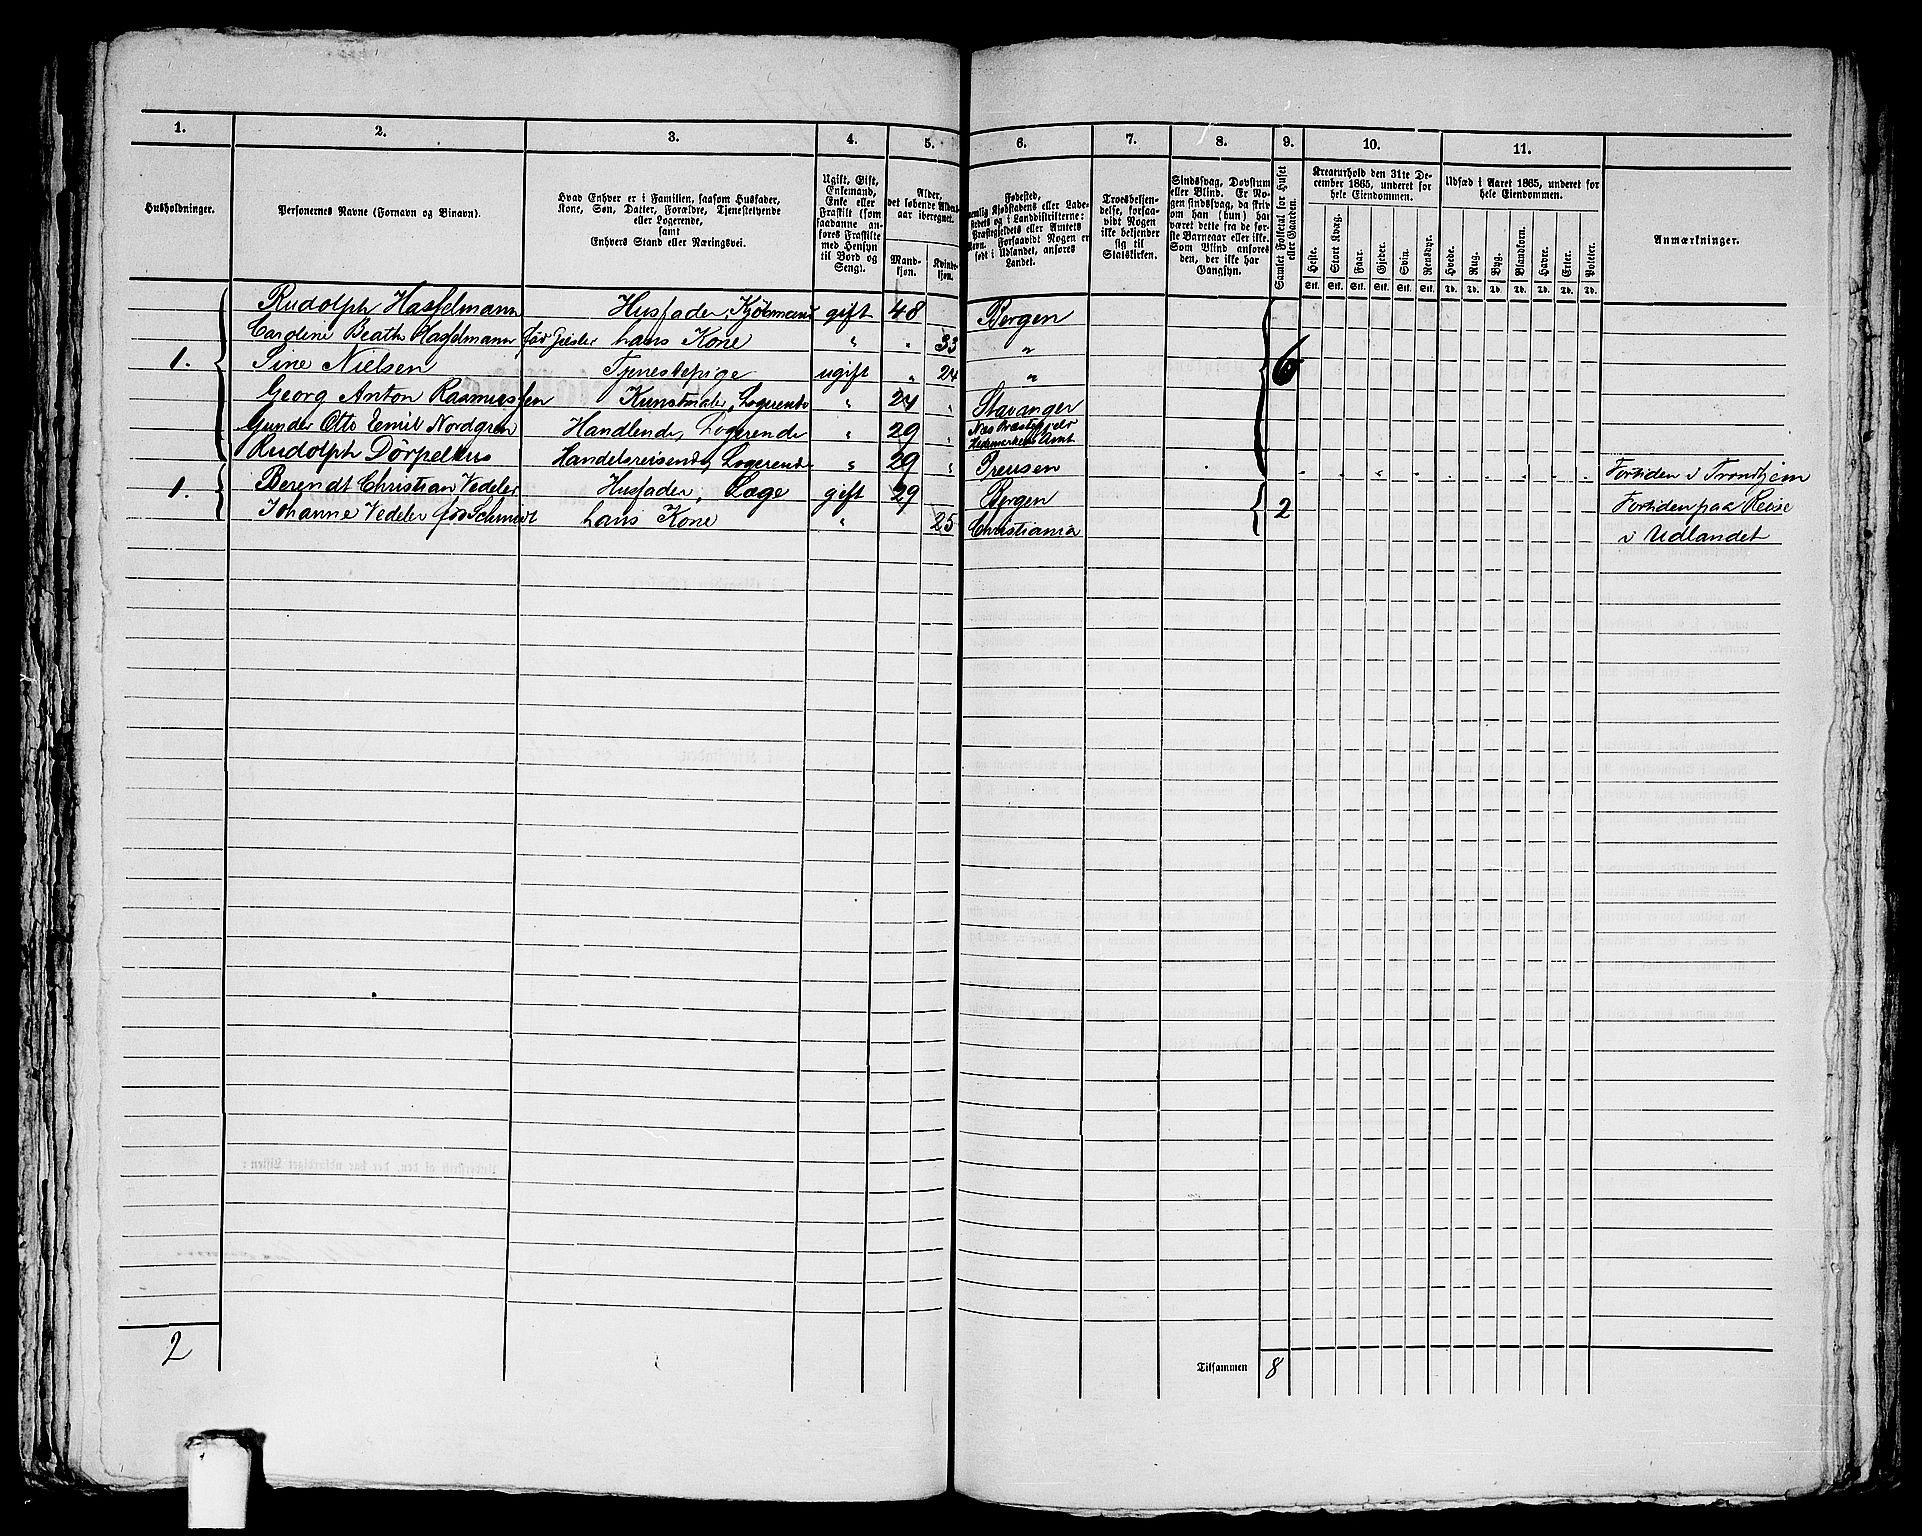 1. 2. 3. 4. 5. 6. 7. 8. 9. 10. 11.
Husholdninger.
Personernes Navne (Fornavn og Binavn).
Hvad Enhver er i Familien, saasom Husfader,
Kone, Søn, Datter, Forældre, Tjenestetyende
eller Logerende,
samt
Enhvers Stand eller Næringsvei.
Ugift, Gift,
Enkemand,
Enke eller
Fraskilt (som
saadanne an-
føres Fraskilte
med Hensyn
til Bord og
Seng).
Alder,
det løbende Alders-
aar iberegnet.
Mand-
kjøn.
Kvinde-
kjøn.
Fødested,
nemlig Kjøbstadens eller Lade-
stedets og i Landdistrikterne:
Præstegjeldets eller Amtets
Navn. Forsaavidt Nogen er
født i Udlandet, anføres
Landet.
Troesbekjen-
delse, forsaa-
vidt Nogen
ikke bekjender
sig til
Statskirken.
Sindssvag, Døvstum
eller Blind. Er No-
gen sindssvag, da skriv
om han (hun) har
været dette fra de før-
ste Barneaar eller ikke.
Som Blind anføres
den, der ikke har
Gangsyn.
Samlet Folketal for Huset
eller Gaarden.
Kreaturhold den 31te De-
cember 1865, underet for
hele Eiendommen.
Heste. Stort Kvæg. Faar. Gjeder. Svin. Rensdyr.
Stk. Stk. Stk. Stk. Stk. Stk.
Udsæd i Aaret 1865, underet for
hele Eiendommen.
Hvede. Rug. Byg. Blandkorn. Havre. Erter. Poteter.
Td. Td. Td. Td. Td. Td. Td.
Anmærkninger.
Rudolph Hasselmann Husfader, Kjøbmand gift 48 Bergen
Caroline Beathe Hasselmann fød Giesler hans Kone " " 33 "
1. Sine Nielsen Tjenestepige ugift " 24 " 6
Georg Anton Rasmussen Kunstmaler, Logerende " 24 " Stavanger
Gunder Otto Emil Nordgren Handlende, Logerende " 29 " Nes Præstegjeld Hedemarkens Amt
Rudolph Dörpelkus Handelsreisende, Logerende " 29 " Preusen Fortiden i Trondhjem
1. Berendt Christian Vedeler Husfader, Læge gift 29 Bergen 2 Fortiden paa Reise
Johanne Vedeler fød Schmidt hans Kone " 25 Christiania i Udlandet
2
Tilsammen 8